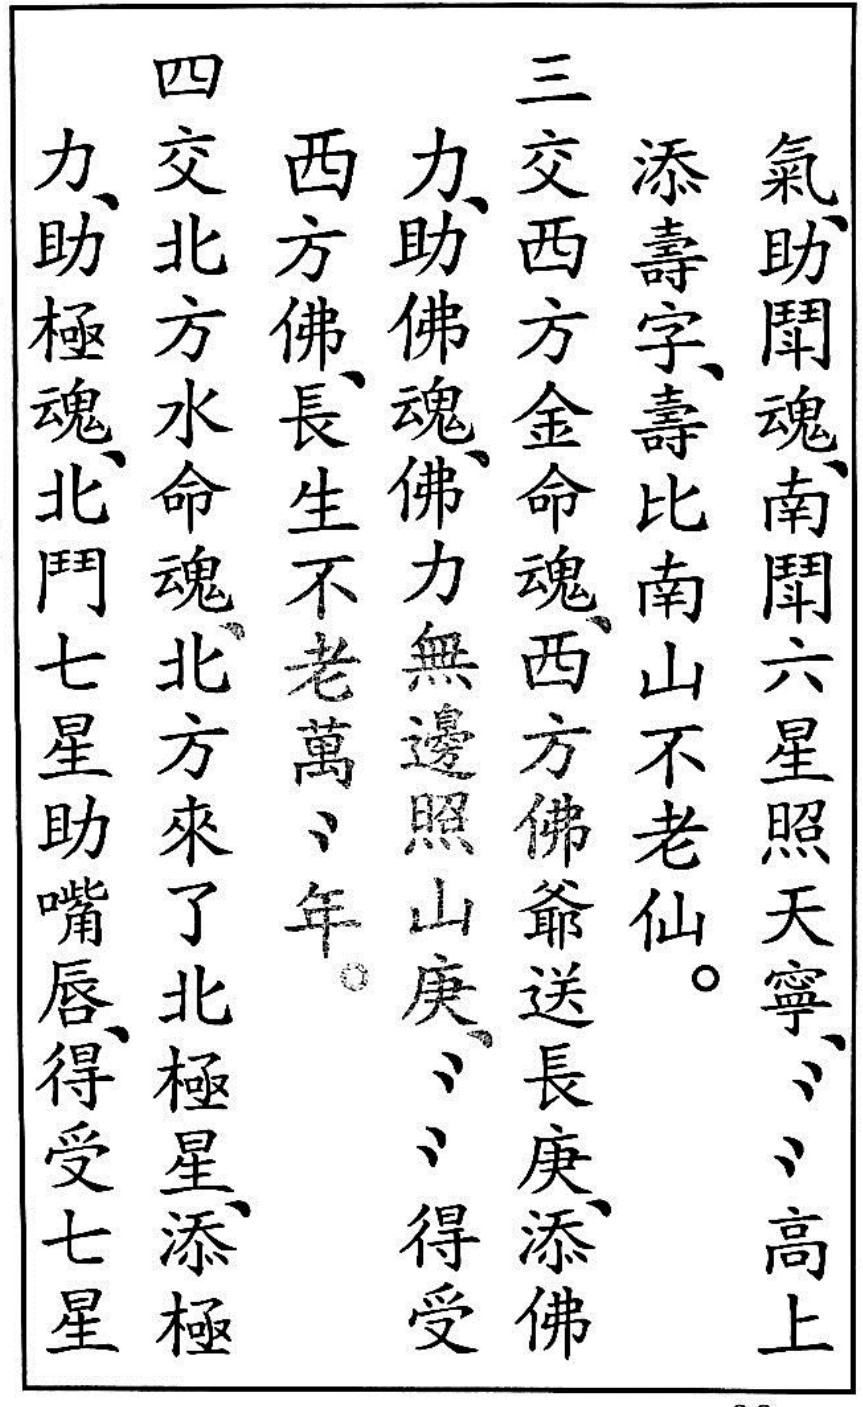 氣、助鬪魂、南鬪六星照天寧、〻〻高上
添壽字、壽比南山不老仙。
三交西方金命魂、西方佛爺送長庚、添佛
力、助佛魂、佛力無邊照山庚、〻〻得受
西方佛、長生不老萬〻年。
四交北方水命魂、北方來了北極星、添極
力、助極魂、北鬥七星助嘴唇、得受七星